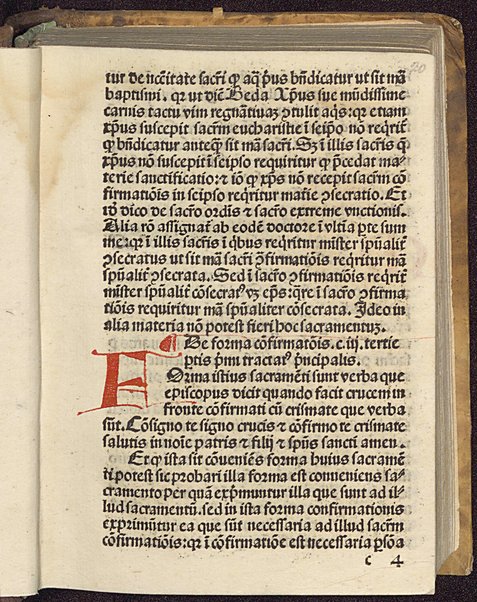 20
tur de nc̄citate sacr̄i ꝙ aq̄ p̄us bn̄dicatur ut sit mā
baptismi. qꝛ ut dic̄ Beda Xp̄us sue mūdissime
carnis tactu vim regn̄atiuaꝫ ↄtulit aq̄s: qꝛ etiam
xp̄us suscepit sacr̄m eucharistie ī seip̄o nō reqr̄it̄
ꝙ bn̄dicatur anteq̄ sit mā sacr̄i. Sꝫ ī illis sacr̄is q̄
xp̄us nō suscepit ī seipso requiritur ꝙ p̄cedat ma-
terie sanctificatio: ⁊ iō ꝙ xp̄s nō recepit sacr̄m cō
firmatiōis in seipso req̄ritur mat̄ie ↄsecratio. Et
iō dico de sacr̄o ordīs ⁊ sacr̄o extreme vnctionis.
Alia rō assignat̄ ab eodē doctore ī vltīa ꝑte sum
me: qꝛ ī illis sacr̄is ī q̄bus req̄ritur mīster sp̄ualit̄
ↄsecratus ut sit mā sacr̄i ↄfirmatiōis req̄ritur mā
sp̄ualit̄ ↄsecrata. Sed ī sacr̄o ↄfirmatiōis req̄rit̄
mīster sp̄ualit̄ cōsecratꝰ vꝫ ep̄s: q̄re ī sacr̄o ↄfirma
tiōis requiritur mā sp̄ualiter cōsecrata. Ideo in
alia materia nō potest fieri hoc sacramentuꝫ.
¶ De forma cōfirmatiōis. c. iij. tertie
ꝑtis p̄mi tractatꝰ p̄ncipalis.
FOrma istius sacramēti sunt verba que
episcopus dicit quando facit crucem in
fronte cōfirmati cū crismate que verba
sūt. Cōsigno te signo crucis ⁊ cōfirmo te crismate
salutis in noīe patris ⁊ filij ⁊ sp̄us sancti amen.
Et ꝙ ista sit cōueniēs forma huius sacramē
ti potest sic probari illa forma est conueniens sa-
cramento per quā exp̄muntur illa que sunt ad il-
lud sacramentū. sed in ista forma confirmationis
exprimūtur ea que sūt necessaria ad illud sacr̄m
cōfirmatiōis: qꝛ ī cōfirmatiōe est necessaria ꝑsōa
c 4